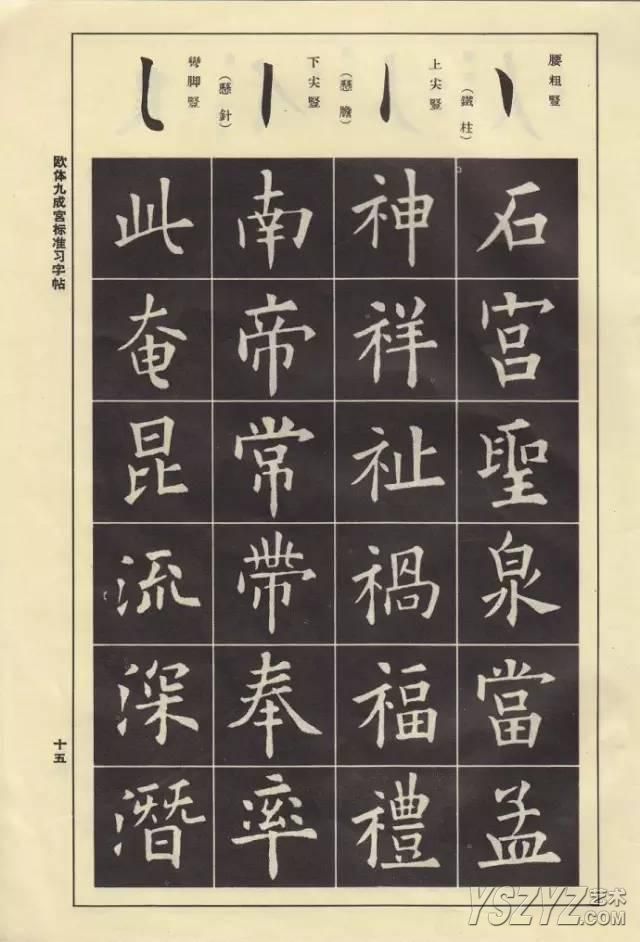 腰粗豎
（鐵柱）
上尖豎
（懸膽）
下尖豎
（懸針）
彎脚豎
石宮聖泉當孟
神祥祉禍福禮
南帝常帶奉率
此奄昆流深潛
欧体九成宮标准习字帖
十五
YSZYZ艺术
.COM